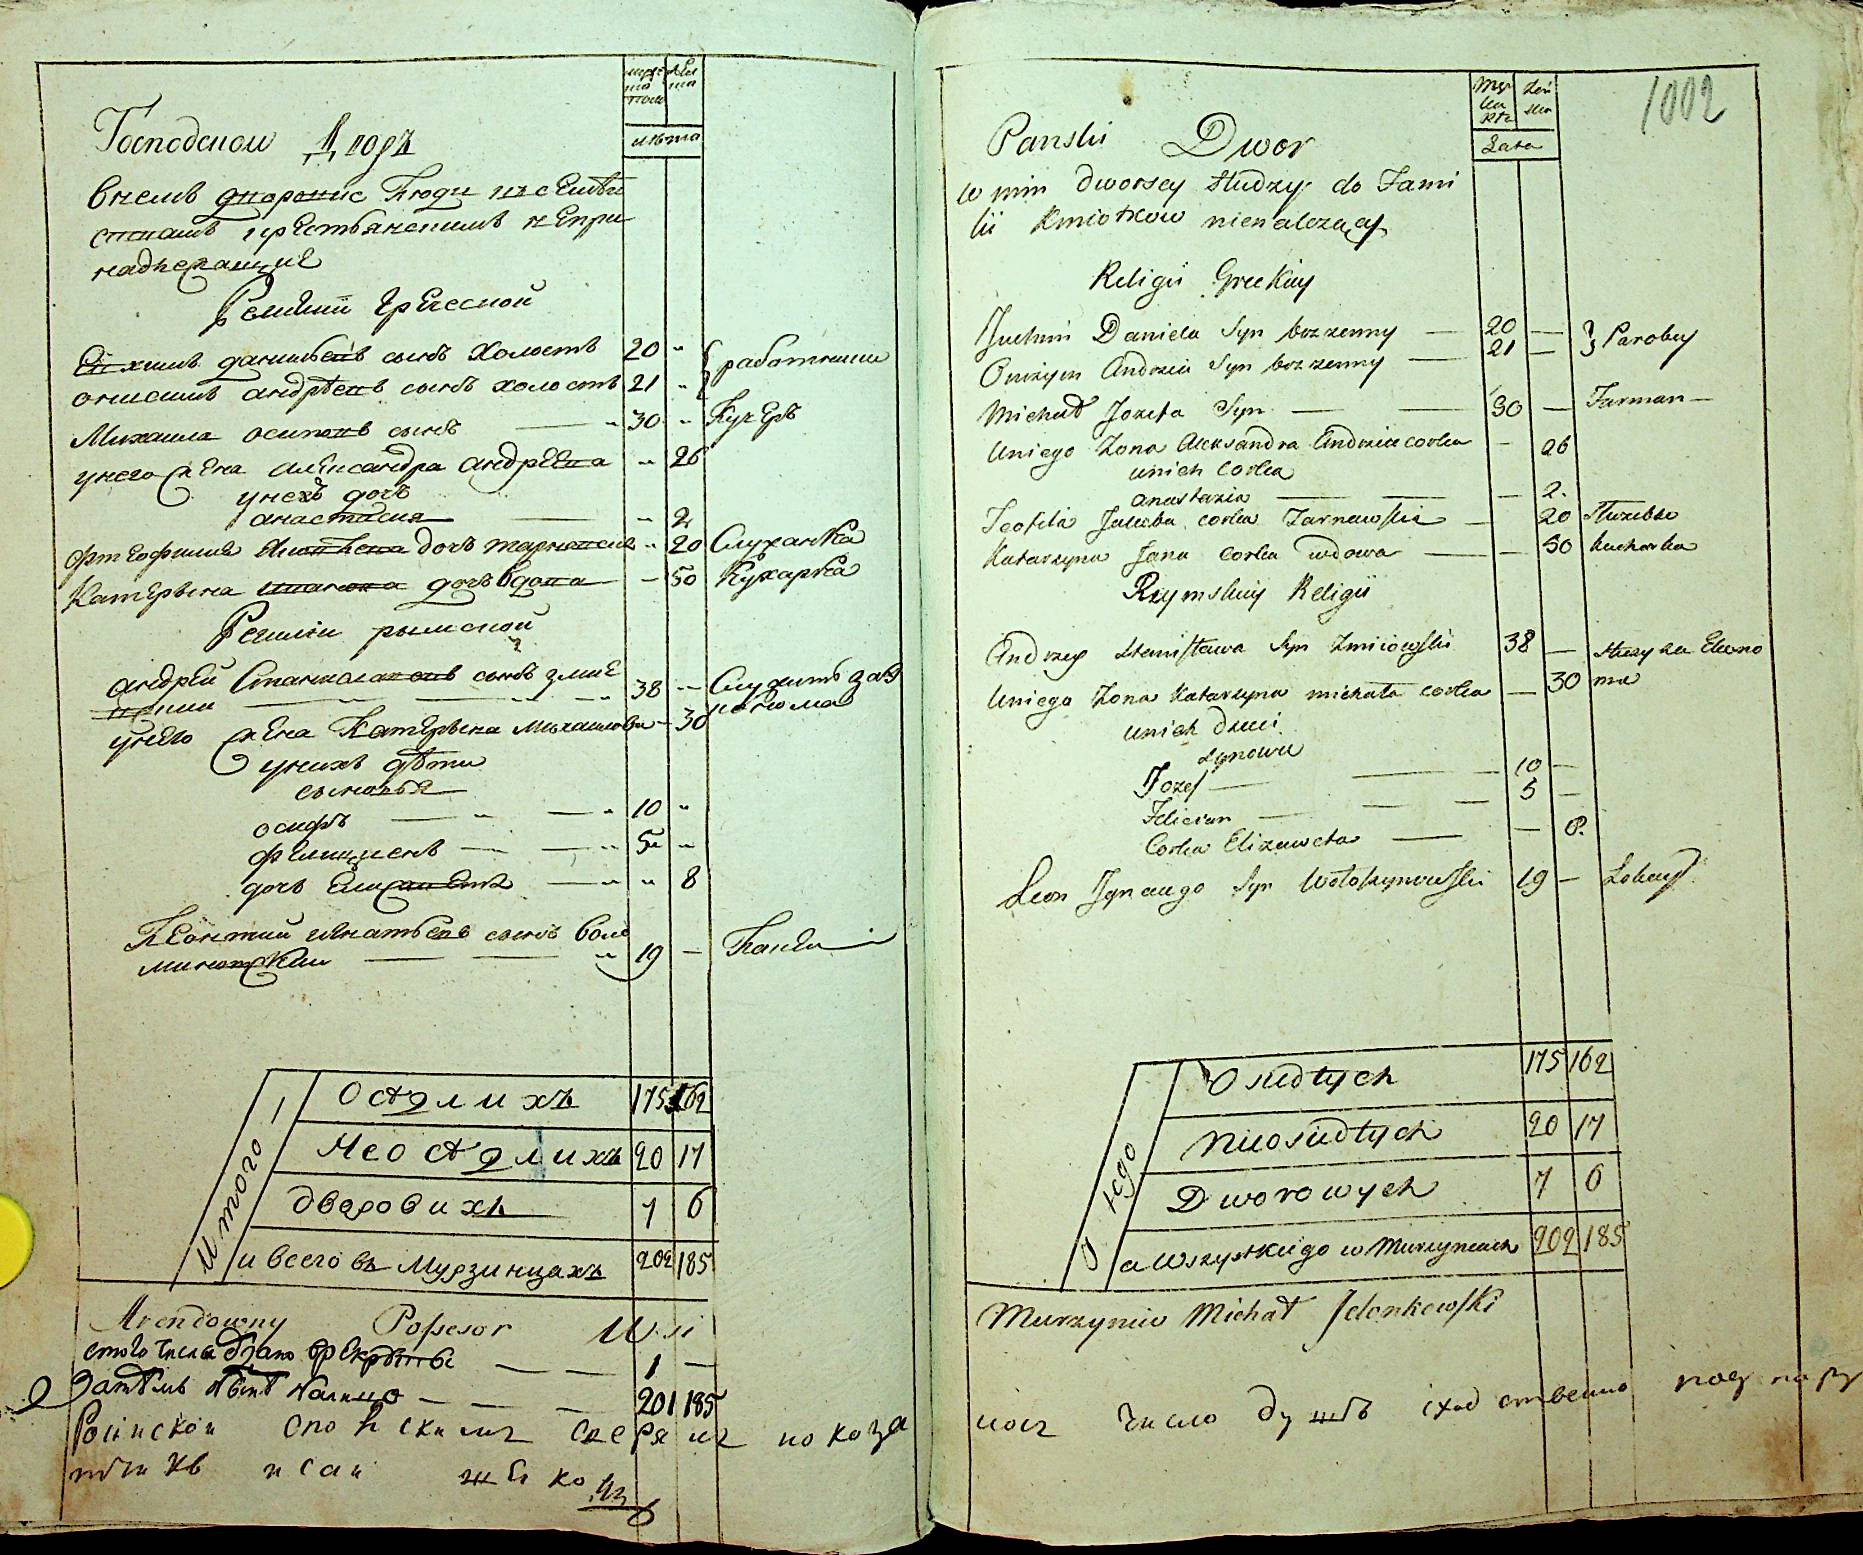 мужеска полу
женска
лѣта
Господской Дворъ
внемъ дворовые Люди къ семѣй
ствамъ крестьянскимъ непри
надлежащие
Религии Греческой
Евхимъ данильевъ сынъ холостъ 20 " работники
онисимъ андрѣевъ сынъ холостъ 21 "
Михаила осиповъ сынъ — " 30 " Кучеръ
унего жена александра андрѣева " 26
унехъ дочь
анастасия — " 2
Теофилия Яковлева дочь тарновская " 20 Служанка
Катерына иванова дочь вдова — 50 Кухарка
Религии рымской
андрей Станиславовъ сынъ змие
вский — 38 — Служитъ за эк
онома
унего жена Катерына Михайлова — 30
унихъ дѣти
сыновья
осифъ — " — " 10 "
фелициянъ — — " 5 "
дочь Елисавета — " " 8
Леонтий игнатьевъ сынъ воло
шиновский — — " 19 — Лакей
Итого
Оседлихъ 175 162
Неоседлихъ 20 17
дворовихъ 7 6
и всего въ Мурзинцахъ 202 185
Arendowny Possesor Wsi
стого числа взято врекруты — — 1 —
Затѣмъ нынѣ налицо — — — 201 185
1002
Męz
ka
płci
żeń
ska
Lata
Panski Dwor
w nim dworscy Słudzy do Fami
lii Kmiotkow nienalezący
Religii Greckiey
Juchim Daniela Syn bezzenny — 20 — Parobcy
Onizym Andrzeia Syn bezzenny — 21 —
Michał Jozefa Syn — — 30 — Furman —
Uniego Zona Alexandra Andrzeia corka — 26
unich Corka
Anastazia — — — 2.
Teofila Jakuba corka Tarnawska — 20 Słuzebna
Katarzyna Jana Corka wdowa — — 50 kucharka
Rzymskiey Religii
Andrzey Stanisława Syn Zmiiowski 38 — służy za Ekono
Uniego Zona Katarzyna Michała corka — 30 ma
unich Dzieci
Synowie
Jozef — — — 10 —
Felician — — — 5 —
Corka Elizaweta — — 8.
Leon Ignacego Syn Wołoszynowski 19 — Lokay
Z tego
Osiadłych 175 162
Nieosiadłych 20 17
Dworowych 7 6
a wszystkiego w Murzyncach 202 185
Murzyniec Michał Jelenkowski
число душъ сходственно